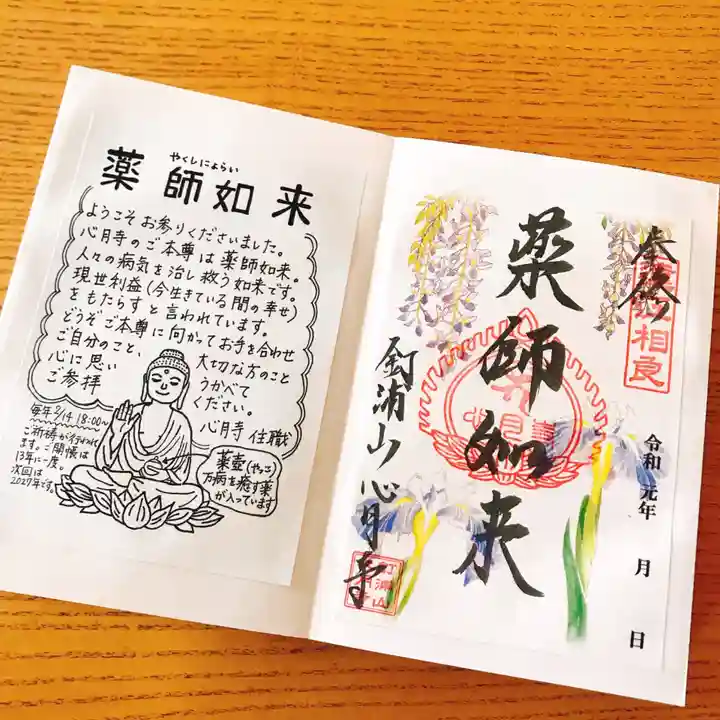 やくしにょらい
薬師如来
ようこそお参りくださいました。
心月寺のご本尊は薬師如来。
人々の病気を治し救う如来です。
現世利益(今生きている間の幸せ)
をもたらすと言われています。
どうぞご本尊に向かってお手を合わせ
ご自分のこと、大切な方のこと
心に思いうかべて
ご参拝ください。
心月寺 住職
毎年8/14 18:00〜
ご祈祷が行われ
ます。ご開帳は
13年に一度。
次回は
2027年です。
薬壺(やっこ)
万病を癒す薬
が入っています
奉修
相良
薬師如来
釘浦山心月寺
令和 元年 月 日